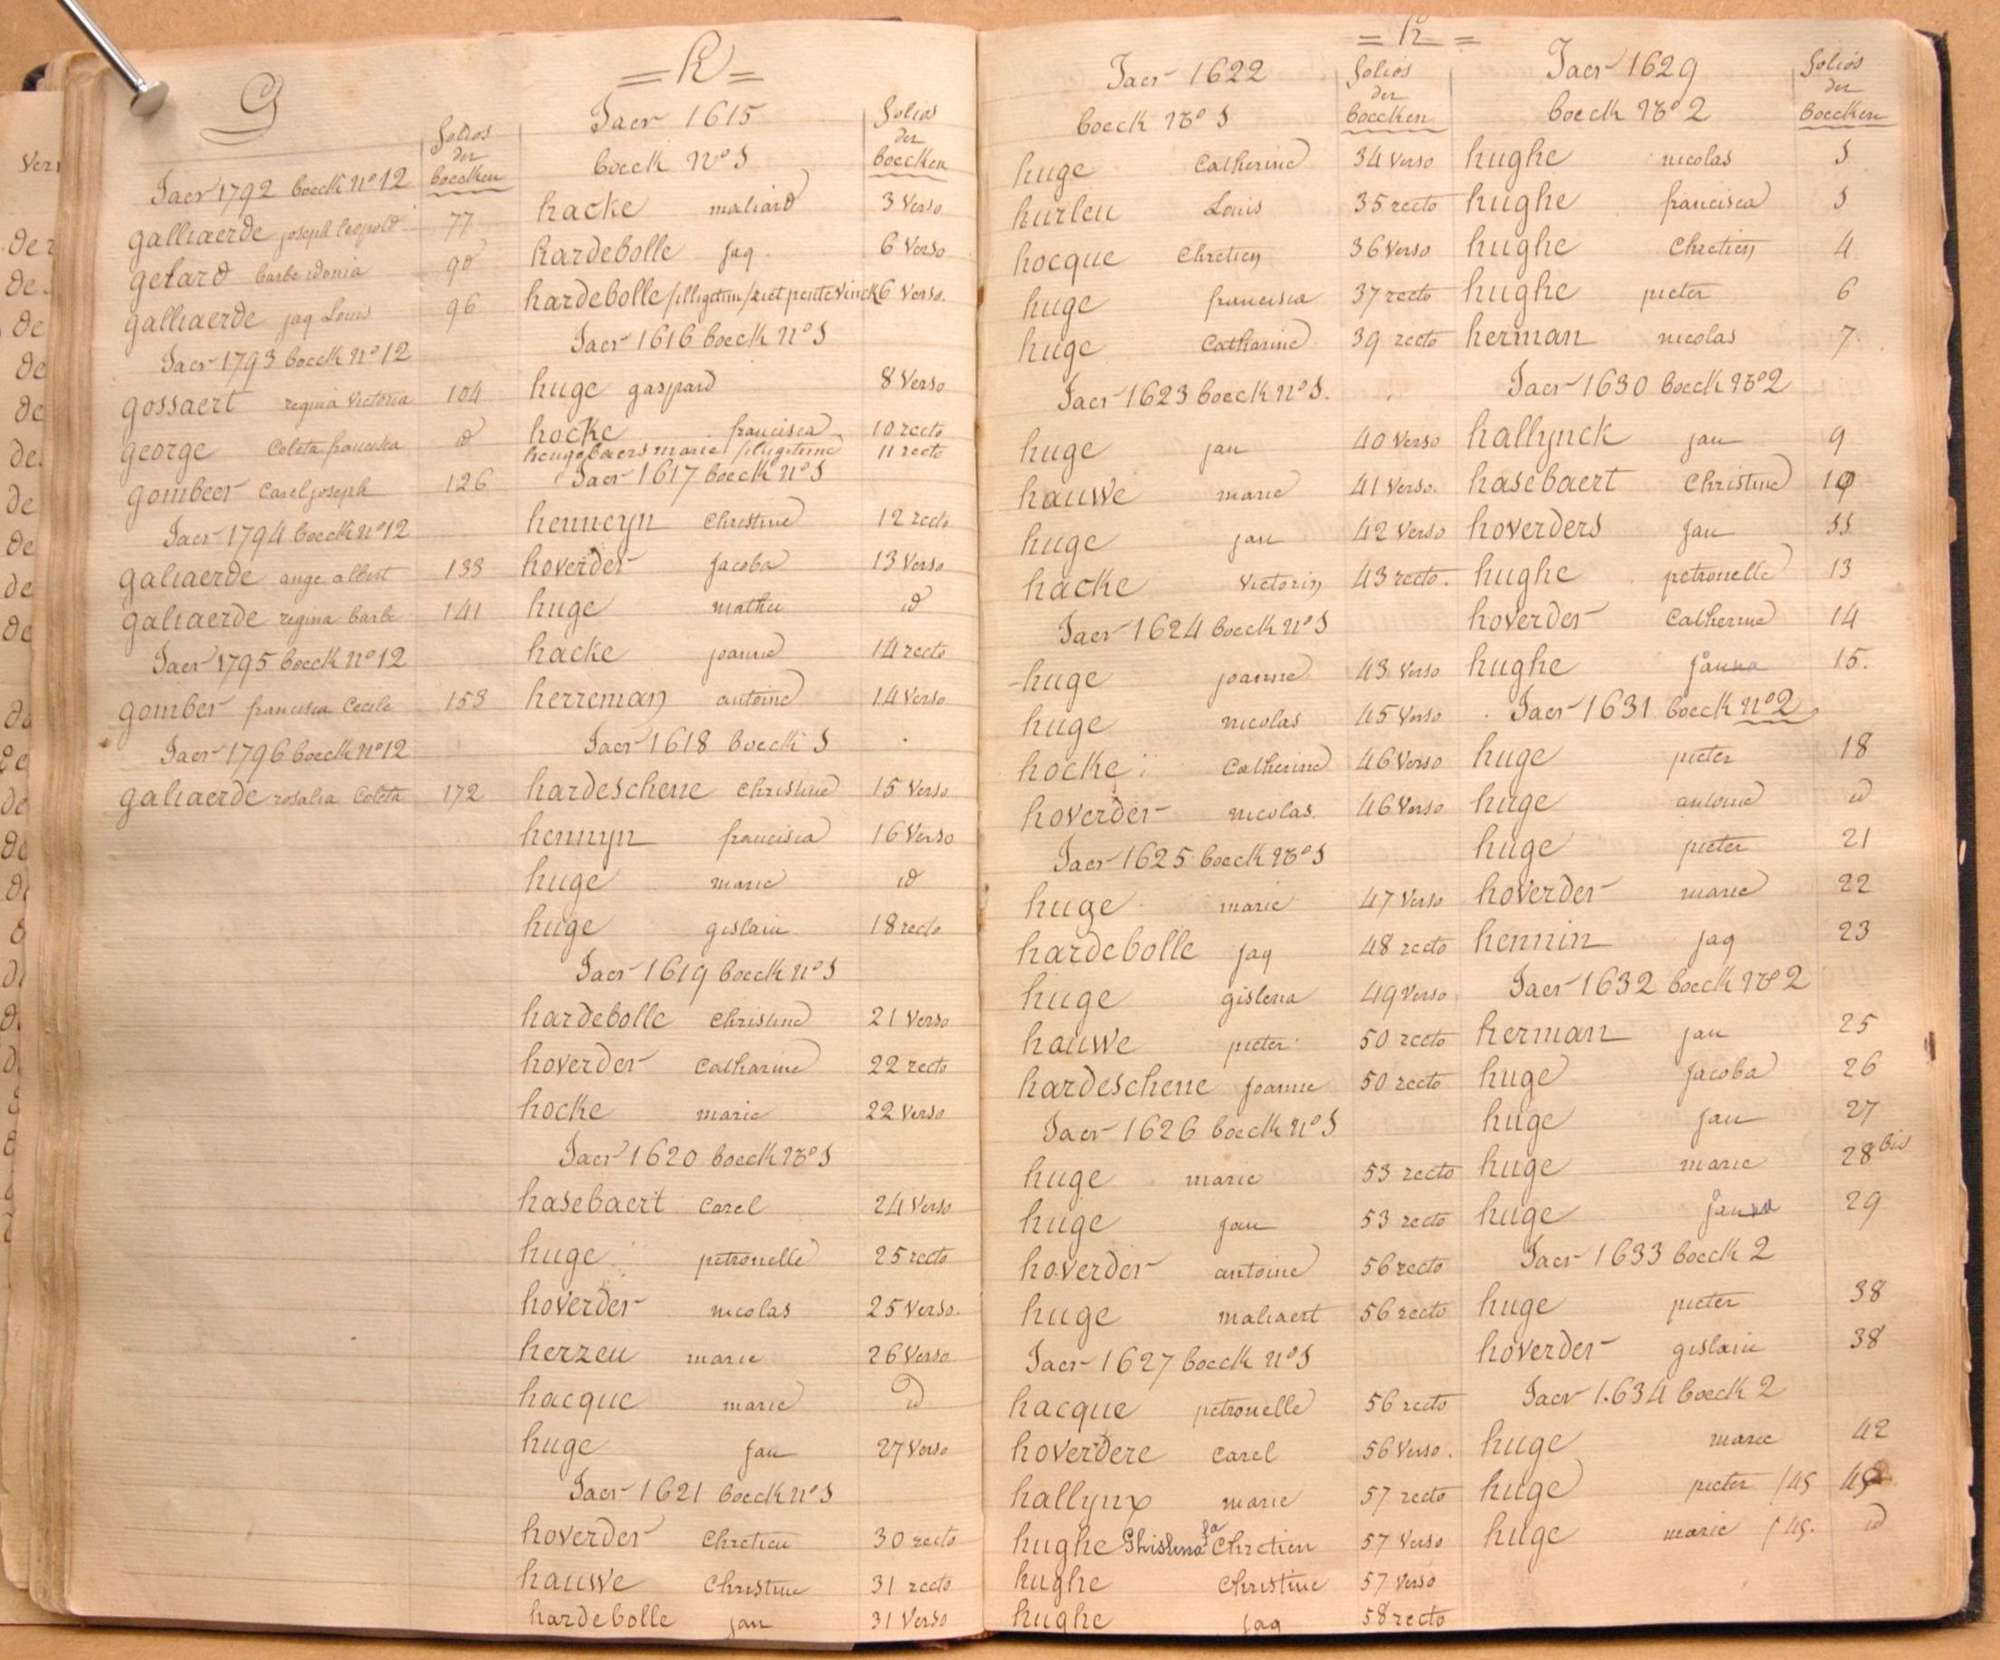 G
folios
der
boecken
Jaer 1792 boeck N° 12
galliaerde joseph leopold 77
gerard barbe idonia 90
galliaerde jaq Louis 96
Jaer 1793 boeck N° 12
gossaert regina Victoria 104
george Coleta francisca id
gombeer Carel joseph 126
Jaer 1794 boeck N° 12
galiaerde ange albert 133
galiaerde regina barbe 141
Jaer 1795 boeck N° 12
gomber francisca Cecile 153
Jaer 1796 boeck N° 12
galiaerde rosalia Coleta 172
= H =
Jaer 1615
folios
der
boecken
boeck N° 1
hacke maliard 3 Verso
hardebolle jaq 6 Verso
hardebolle /illigitim/ piet pente Vinck 6 Verso.
Jaer 1616 boeck N° 1
huge gaspard 8 Verso
hocke francisca 10 recto
heugebaers marie /illigitime 11 recto
Jaer 1617 boeck N° 1
henneyn Christine 12 recto
hoverder Jacoba 13 Verso
huge mathie id
hacke joanne 14 recto
herreman antoine 14 Verso
Jaer 1618 boeck 1
hardeschene Christine 15 Verso
hennyn francisca 16 Verso
huge marie id
huge gislain 18 recto
Jaer 1619 boeck N° 1
hardebolle Christine 21 Verso
hoverder Catharine 22 recto
hocke marie 22 Verso
Jaer 1620 boeck N° 1
hasebaert Carel 24 Verso
huge petronelle 25 recto
hoverder nicolas 25 Verso.
herzeu marie 26 Verso
hacque marie id
huge Jan 27 Verso
Jaer 1621 boeck N° 1
hoverder Chretien 30 recto
hauwe Christine 31 recto
hardebolle jan 31 Verso
= H =
Jaer 1622
folios
der
boecken
boeck N° 1
huge Catherine 34 Verso
hurleu Louis 35 recto
hocque Chretien 36 Verso
huge francisca 37 recto
huge Catharine 39 recto
Jaer 1623 boeck N° 1.
huge jan 40 Verso
hauwe marie 41 Verso.
huge jan 42 Verso
hacke Victorin 43 recto.
Jaer 1624 boeck N° 1
huge joanne 43 Verso
huge nicolas 45 Verso
hocke Catherine 46 Verso
hoverder nicolas. 46 Verso
Jaer 1625 boeck N° 1
huge marie 47 Verso
hardebolle jaq 48 recto
huge gislena 49 Verso
hauwe pieter 50 recto
hardeschene Joanne 50 recto
Jaer 1626 boeck N° 1
huge marie 53 recto
huge jan 53 recto
hoverder antoine 56 recto
huge maliaert 56 recto
Jaer 1627 boeck N° 1
hacque petronelle 56 recto
hoverdere Carel 56 Verso.
hallynx marie 57 recto
hughe Ghislena fa Chretien 57 Verso
hughe Christine 57 Verso
hughe jaq 58 recto
Jaer 1629
folios
der
boecken
boeck N° 2
hughe nicolas 1
hughe francisca 1
hughe Chretien 4
hughe pieter 6
herman nicolas 7.
Jaer 1630 boeck N° 2
hallynck jan 9
hasebaert Christine 10
hoverders Jan 11
hughe petronelle 13
hoverder Catherine 14
hughe Janna 15.
Jaer 1631 boeck N° 2
huge pieter 18
huge antoine id
huge pieter 21
hoverder marie 22
hennin Jaq 23
Jaer 1632 boeck N° 2
herman jan 25
huge Jacoba 26
huge Jan 27
huge marie 28 bis
huge Janna 29
Jaer 1633 boeck 2
huge pieter 38
hoverder gislain 38
Jaer 1634 boeck 2
huge marie 42
huge pieter /45 45
huge marie /45. id